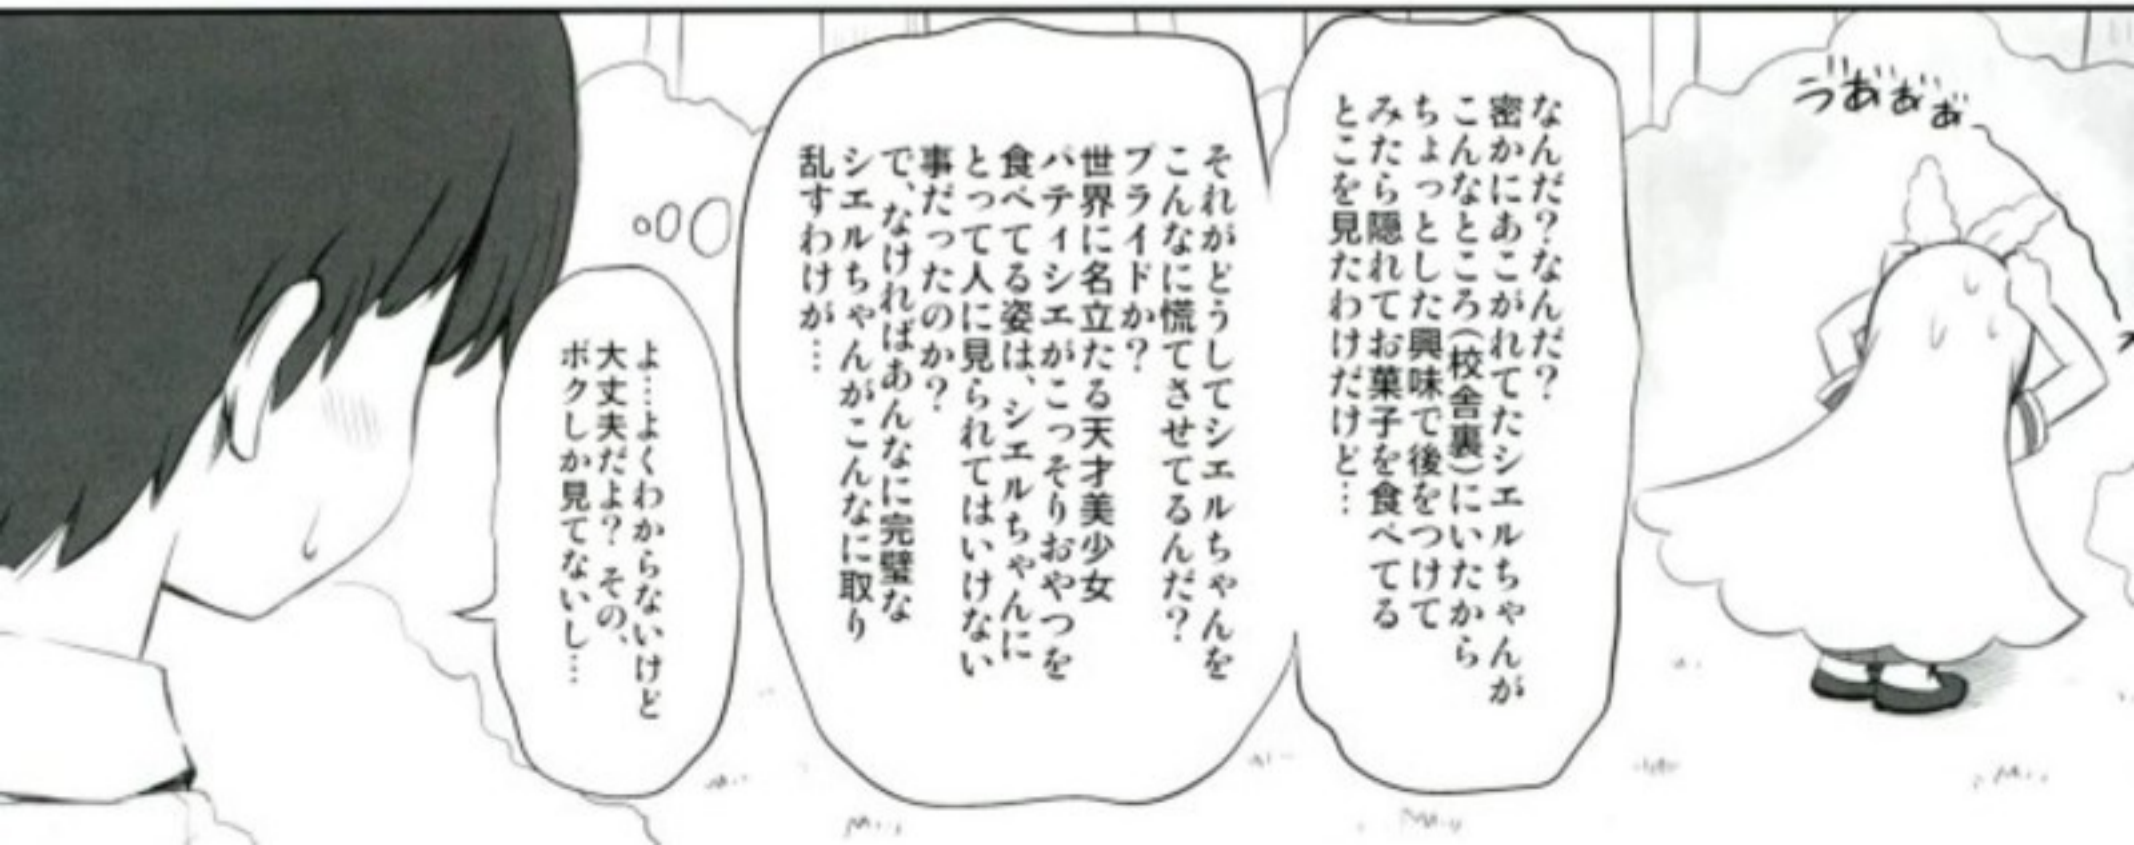 うあ゙あ゙ぁ゙
なんだ?なんだ?
密かにあこがれてたシエルちゃんが
こんなところ(校舎裏)にいたから
ちょっとした興味で後をつけて
みたら隠れてお菓子を食べてる
とこを見たわけだけど…
それがどうしてシエルちゃんを
こんなに慌てさせてるんだ?
プライドか?
世界に名立たる天才美少女
パティシエがこっそりおやつを
食べてる姿は、シエルちゃんに
とって人に見られてはいけない
事だったのか?
で、なければあんなに完璧な
シエルちゃんがこんなに取り
乱すわけが…
よ…よくわからないけど
大丈夫だよ? その、
ボクしか見てないし…